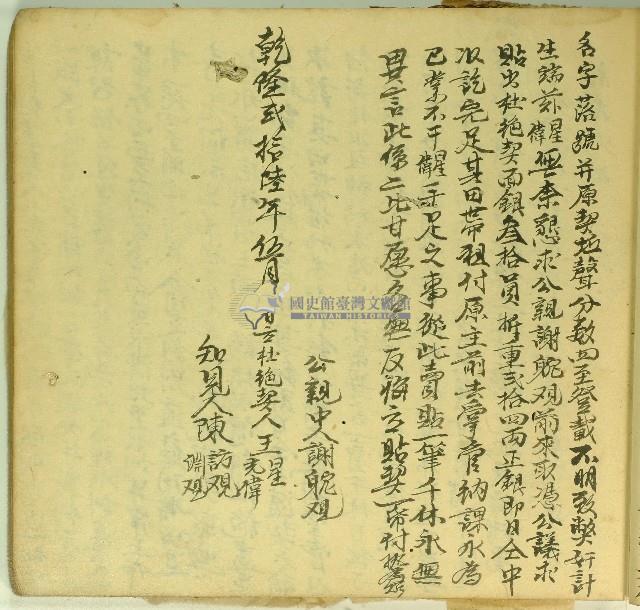 名字落號并原契坵聲分数四至登載不明致弊奸計
生端茲星偉無奈懇求公親謝觀前來取憑公議求
貼出杜絶契面銀叁拾員折重弍拾四両正銀即日仝中
收訖完足其田帶租付原主前去掌管納課永為
己業不干星偉手足之事從此賣貼一筆千休永無
異言此係二比甘愿各無反悔立貼契一帋付炤
公親中人謝觀
乾隆弍拾陸年伍月 日立杜絶契人王星元偉
知見人陳訪觀淵觀
國史館臺灣文獻館
TAIWAN HISTORICA